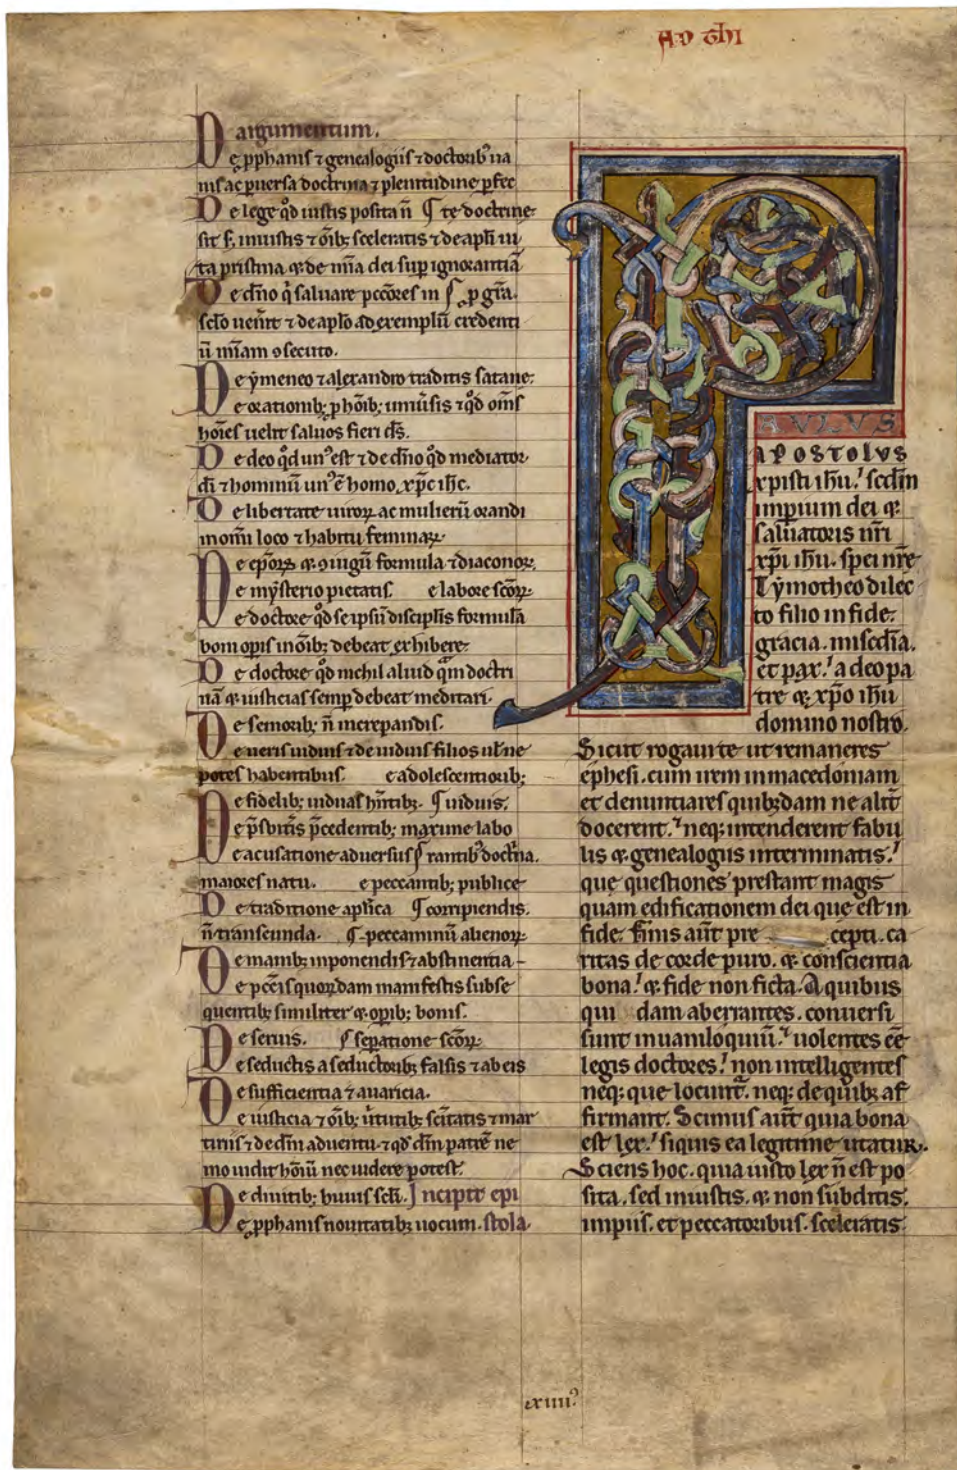 AD THI
argumentum.
De p̱phanis ⁊ genealogiis ⁊ doctorib᷒ ua
nis ac p̱uersa doctrina ⁊ plenitudine p̱fec
De lege qd̓ iustis posita ñ ¶ te doctrine
sit s̓. iniustis ⁊ oīb; sceleratis ⁊ de apl̓i ui
ta pristina ⁊ de m̄ia dei sup̱ ignorantiā
De dn̄o q̓ saluare pccōres in ſ p̱ gr̄a.
sclo uenit ⁊ de apl̓o ad exemplū credenti
ū m̄iam ꝯsecuto.
De ẏmeneo ⁊ alexandro traditis satane.
De orationib; p̱ hoīb; uniūsis ⁊ qd̓ om̄s
hoīes uelit saluos fieri d̄s.
De deo qd̓ un᷒ est ⁊ de dn̄o qd̓ mediator
di ⁊ hominū un᷒ ē homo xp̄c ih̄c.
De libertate uiroꝝ ac mulierū orandi
in om̄i loco ⁊ habitu feminaꝝ.
De ep̄oꝝ ⁊ ꝯiugū formula ⁊ diaconoꝝ.
De mẏsterio pietatis. De labore scōꝝ.
De doctore qd̓ se ipsū discipl̓is formulā
boni op̱is in oīb; debeat exhibere.
De doctore qd̓ nichil aliud quā doctri
nā ⁊ iusticias semp̱ debeat meditari.
De seniorib; ñ increpandis.
De ueris uiduis ⁊ de uiduis filios ul̓ ne
potes habentibus. De adolescentiorib;
De fidelib; uiduas hn̄tib; ¶ uiduis.
De p̄sbit̓is p̄cedentib; maxime labo
De acusatione aduersus ſ rantib᷒ doct̓na.
maiores natu. De peccantib; publice
De traditione apl̓ica ¶ corripiendis.
ñ transeunda. ¶ peccaminū alienoꝝ.
De manib; inponendis ⁊ abstinentia
De pccīs quoꝝdam manifestis subse
quentib; similiter ⁊ op̱ib; bonis.
De seruis. ſ sep̱atione scōꝝ.
De seductis a seductorib; falsis ⁊ ab eis
De sufficientia ⁊ auaricia.
De iusticia ⁊ oīb; uirtutib; scītatis ⁊ mar
tiriis ⁊ de dn̄i aduentu ⁊ qd̓ dn̄m patrē ne
mo uidit hoīū nec uidere potest.
De diuitib; huius sc̄li. Incipit epi
De p̱phanis nouitatib; uocum. stola.
P
AULUS
APOSTOLUS
xpisti ihū! scdm̄
imperium dei ⁊
saluatoris nr̄i
xpī ihū. spei nr̄e
Tẏmotheo dilec
to filio in fide.
gracia. misedīa.
et pax! a deo pa
tre ⁊ xp̄o ihū
domino nostro.
Sicut rogaui te ut remaneres
ephesi. cum irem in macedoniam
et denuntiares quib;dam ne alit̄
docerent. neq; intenderent fabu
lis ⁊ genealogiis interminatis!
que questiones prestant magis
quam edificationem dei que est in
fide. finis aūt pre cepti. ca
ritas de corde puro. ⁊ conscientia
bona! ⁊ fide non ficta. A quibus
qui dam aberrantes. conuersi
sunt in uaniloquiū. uolentes eē
legis doctores! non intelligentes
neq; que locunt̄. neq; de quib; af
firmant. Scimus aūt quia bona
est lex! siquis ea legitime utatur.
Sciens hoc. quia iusto lex ñ est po
sita. sed iniustis. ⁊ non subditis.
impiis. et peccatoribus. sceleratis.
cxiiii᷒